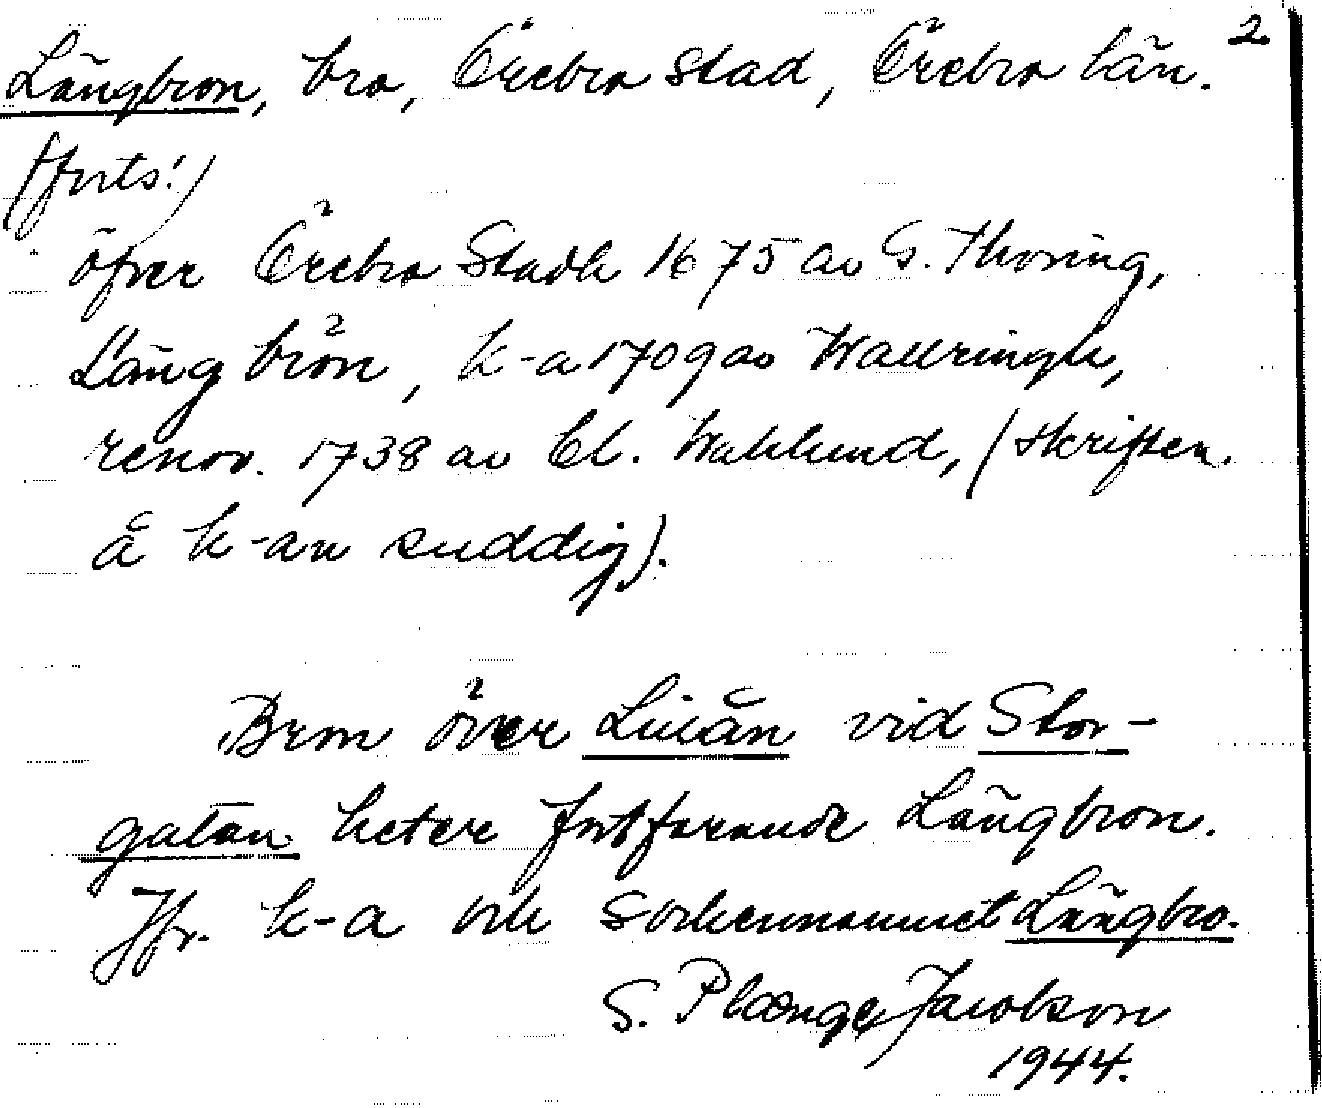 2.
Långbron, bro, Örebro stad, Örebro län.
(forts.)
öfver Örebro Stadh 1675 av G. Thoring,
Lång brön, k-a 1709 av Wallringh,
renov. 1738 av Cl. Wahlund, (skriften
å k-an suddig).
Bron över Lillån vid Stor-
gatan heter fortfarande Långbron.
Jfr. k-a och sockennamnet Långbro.
S. Plænge Jacobson
1944.